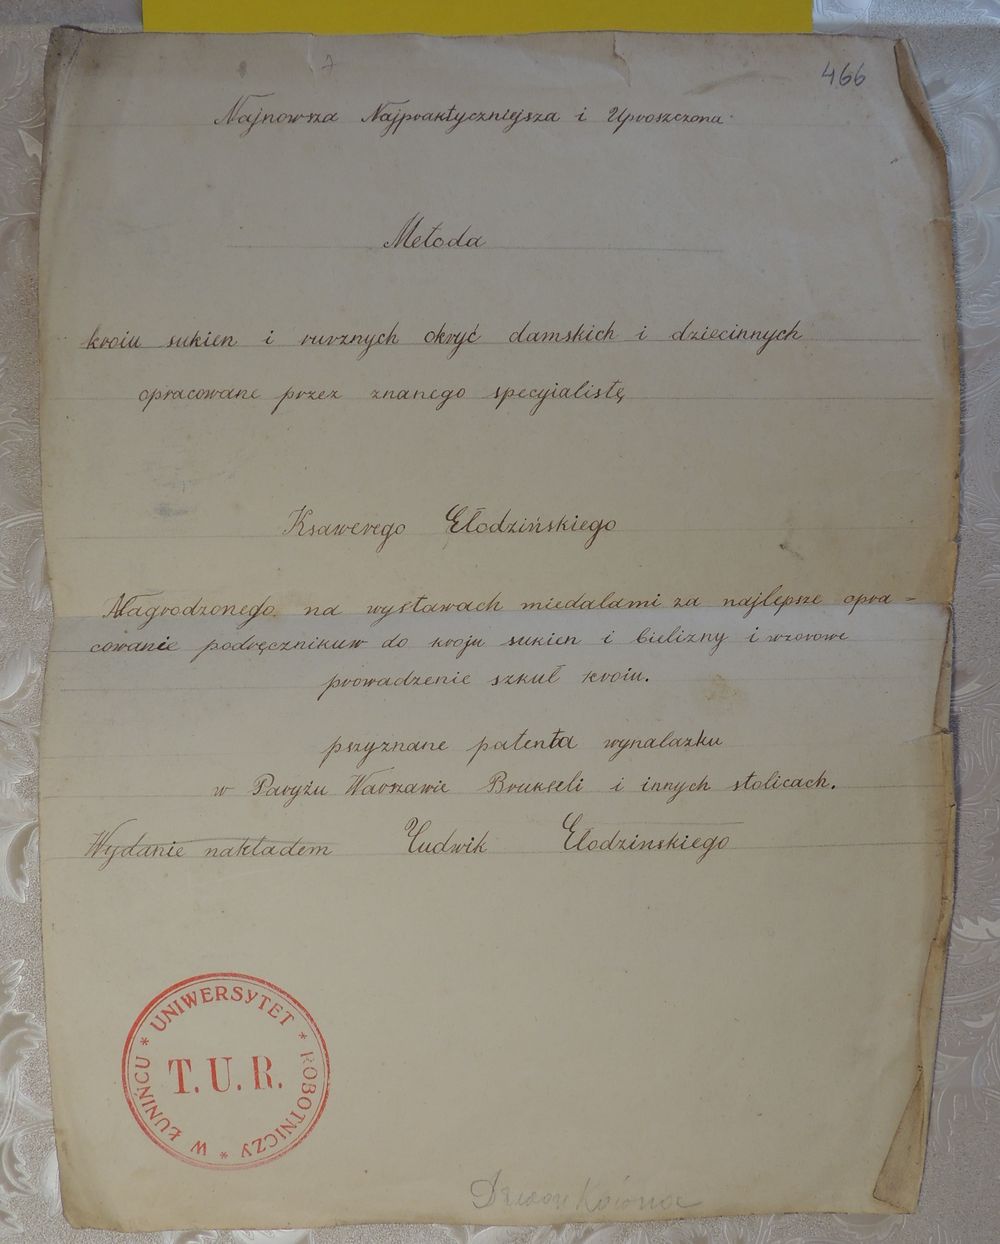 466
Najnowsza Najpraktyczniejsza i Uproszczona
Metoda
kroiu sukien i rurznych okryć damskich i dziecinnych
opracowane przez znanego specyialistę
Ksawerego Głodzińskiego
Nagrodzonego na wystawach miedalami za najlepsze opra=
cowanie podręcznikuw do kroju sukien i bielizny i wzorowe
prowadzenie szkuł kroiu.
pszyznane patenta wynalazku
w Paryżu Warszawie Brukseli i innych stolicach.
Wydanie nakładem Ludwik Głodzinskiego
* UNIWERSYTET * ROBOTNICZY * W ŁUNIŃCU
T.U.R.